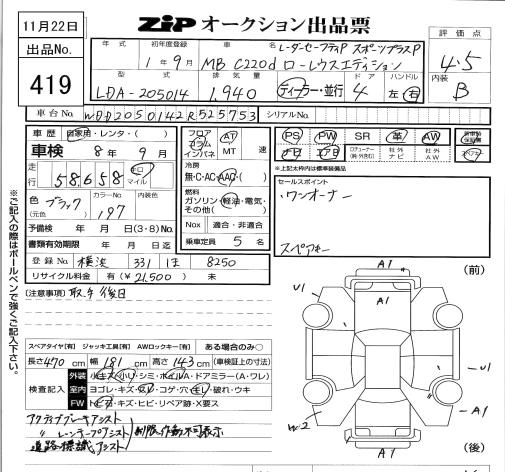 11月22日
出品No.
419
ZIP オークション出品票
評価点
4.5
内装
B
年式 初年度登録 車名 レーダーセーフティP スポーツプラスP
1年9月 MB C220d ローレウスエディション
型式 排気量 ドア ハンドル
LDA-205014 1,940 ディーラー・並行 4 左・右
車台No. WDD2050142R525753 シリアルNo.
車歴 自家用・レンタ・( )
車検 8年9月
走行 58,658 キロ マイル
色 ブラック (元色) カラーNo. 197
予備検 年 月 日(3・6)・No.
書類有効期限 年 月 日迄
登録No. 横浜 331 ほ 8250
リサイクル料金 有(¥21,500) 未
フロア コラム インパネ AT MT 速
冷房
無・C・AC・AAC・( )
燃料
ガソリン・軽油・電気・その他( )
Nox 適合・非適合
乗車定員 5名
PS PW SR 革 AW
ナビ エアB 社外ナビ 社外AW
※上記太枠は標準装備品
新車時保証書
スペアキー
セールスポイント
ワンオーナー
スペアキー
[注意事項] 取手後日
スペアタイヤ[有] ジャッキ工具[有] AWロックキー[有] ある場合のみ○
長さ470cm 幅181cm 高さ143cm (車検証上の寸法)
検査記入
外装 小キズ・小U・シミ・ホイルA・ドアミラー(A・ワレ)
室内 ヨゴレ・キズ・スレ・コゲ・穴・モレ・破れ・ウキ
FW トビA・キズ・ヒビ・リペア跡・X要ス
アクティブブレーキアシスト
〃 レーンキープアシスト 制限 作動不可表示
道路標識アシスト
※ご記入の際はボールペンで強くご記入下さい。
(前)
A1
U1
A1
U1
A1
W2
A1
(後)